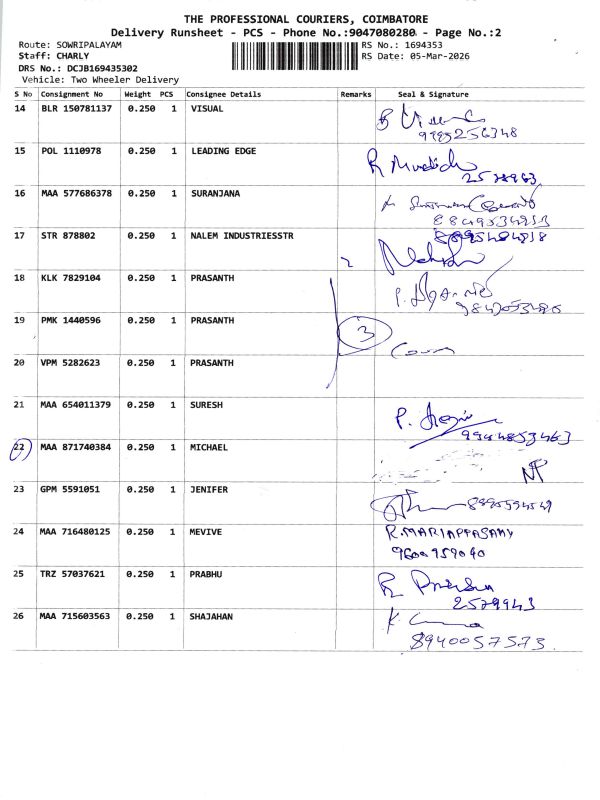 THE PROFESSIONAL COURIERS, COIMBATORE
Delivery Runsheet - PCS - Phone No.:9047080280 - Page No.:2
Route: SOWRIPALAYAM RS No.: 1694353
Staff: CHARLY RS Date: 05-Mar-2026
DRS No.: DCJB169435302
Vehicle: Two Wheeler Delivery
S No Consignment No Weight PCS Consignee Details Remarks Seal & Signature
14 BLR 150781137 0.250 1 VISUAL
15 POL 1110978 0.250 1 LEADING EDGE
16 MAA 577686378 0.250 1 SURANJANA
17 STR 878802 0.250 1 NALEM INDUSTRIESSTR
18 KLK 7829104 0.250 1 PRASANTH
19 PMK 1440596 0.250 1 PRASANTH 3
20 VPM 5282623 0.250 1 PRASANTH
21 MAA 654011379 0.250 1 SURESH
9944853463
22 MAA 871740384 0.250 1 MICHAEL
23 GPM 5591051 0.250 1 JENIFER
24 MAA 716480125 0.250 1 MEVIVE R.MARIAPPASAMY
9600959040
25 TRZ 57037621 0.250 1 PRABHU
2579943
26 MAA 715603563 0.250 1 SHAJAHAN
8940057573